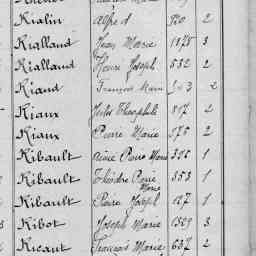 Rialin Alfred 920 2
Rialland Jean Marie 1875 3
Rialland Henri Joseph 532 2
Riand François Marie 2
Riaux Jules Théophile 817 2
Riaux Pierre Marie 975 2
Ribault Aimé Pierre Marie 396 1
Ribault Théodore Pierre Marie 353 1
Ribault Pierre Joseph 127 1
Ribot Joseph Marie 1509 3
Ricaut François Marie 637 2